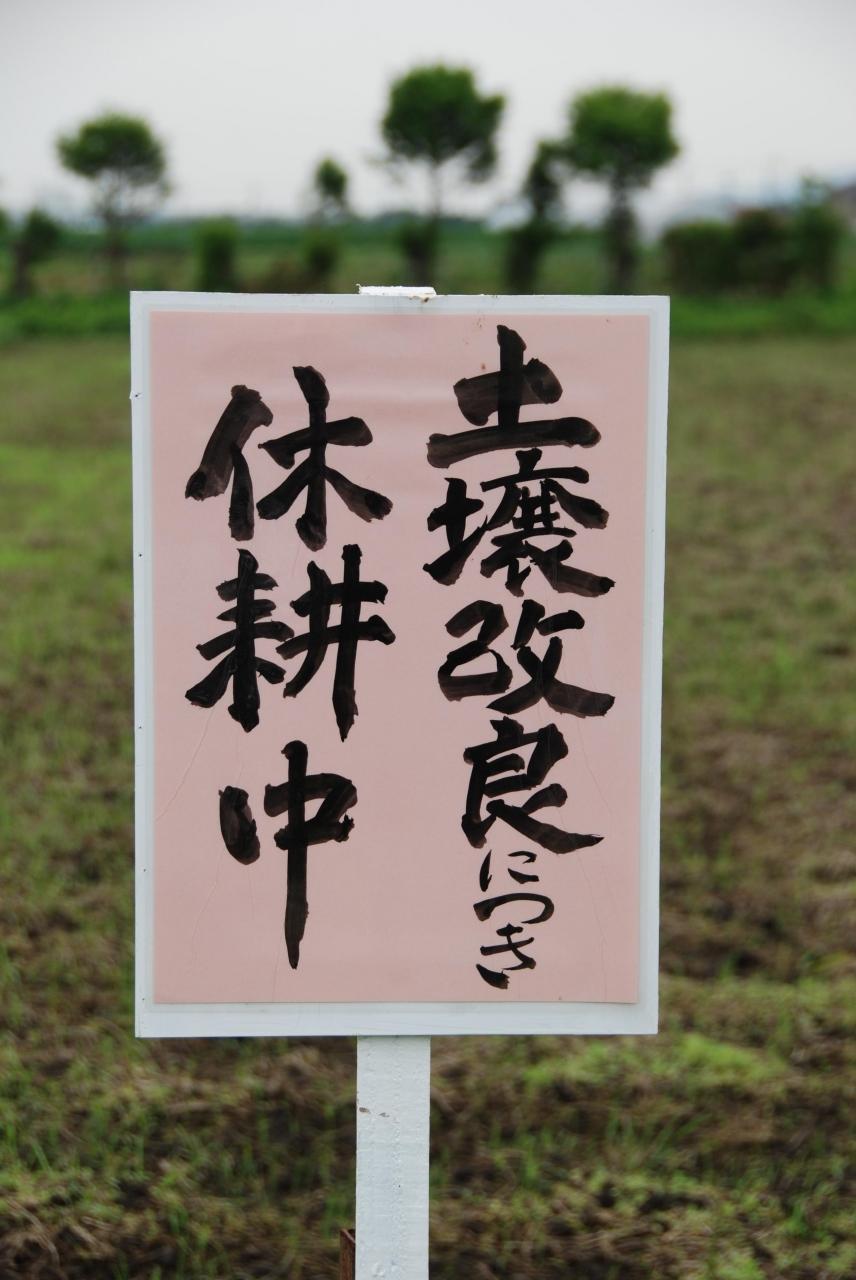 土壌改良につき
休耕中